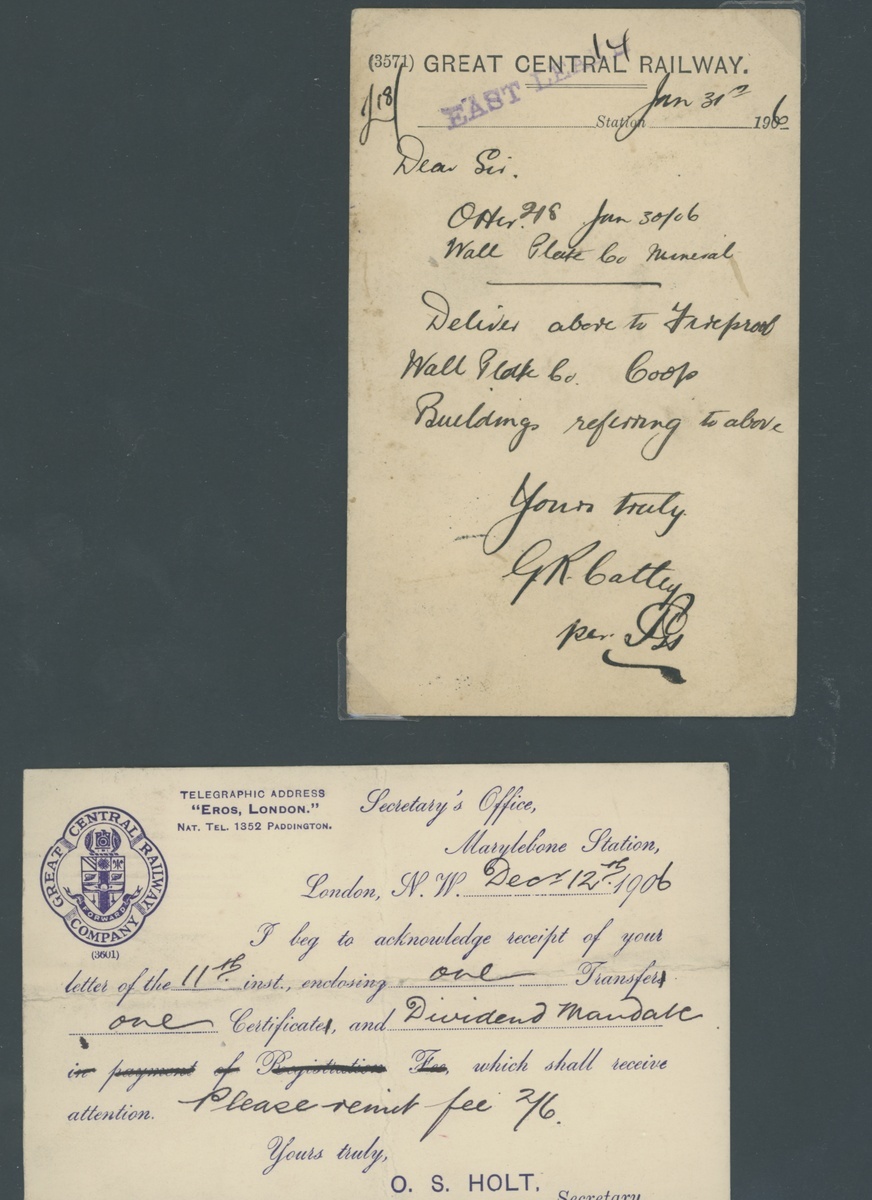 14
(3571) GREAT CENTRAL RAILWAY.
EAST LEAKE
Station Jan 31st 1906
Dear Sir.
Jan 30/06
Wall Plate Co Mineral
Deliver above to Fireproof
Wall Plate Co. Coop
Buildings referring to above
Yours truly
G.R. Cattey
per.
TELEGRAPHIC ADDRESS
"EROS, LONDON."
NAT. TEL. 1352 PADDINGTON.
GREAT CENTRAL RAILWAY COMPANY
FORWARD
(3601)
Secretary's Office,
Marylebone Station,
London, N.W. Decr 12th. 1906
I beg to acknowledge receipt of your
letter of the 11th inst., enclosing one Transfer
one Certificate, and Dividend Mandate
in payment of Registration Fee, which shall receive
attention. Please remit fee 2/6.
Yours truly,
O. S. HOLT.
Secretary